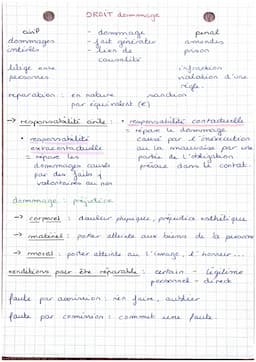 DROIT dommage
civil - dommage penal
dommages - fait générateur amendes
intérêts - lien de prison
causalité
litige entre infraction
personnes violation d'une
règle.
réparation : en nature sanction
par équivalent (€)
→ responsabilité civile : • responsabilité contractuelle
• responsabilité = répare le dommage
extracontractuelle causé par l'inexécution
= répare les ou la mauvaise par une
dommages causés partie de l'obligation
par des faits prévue dans le contrat.
volontaires ou non
dommage : préjudice
→ corporel : douleur physique, préjudice esthétique
→ matériel : porter atteinte aux biens de la personne
→ moral : porter atteinte à l'image, l'honneur...
conditions pour être réparable : certain - légitime
personnel - direct
faute par omission : rien faire, oublier
faute par commission : commet une faute.